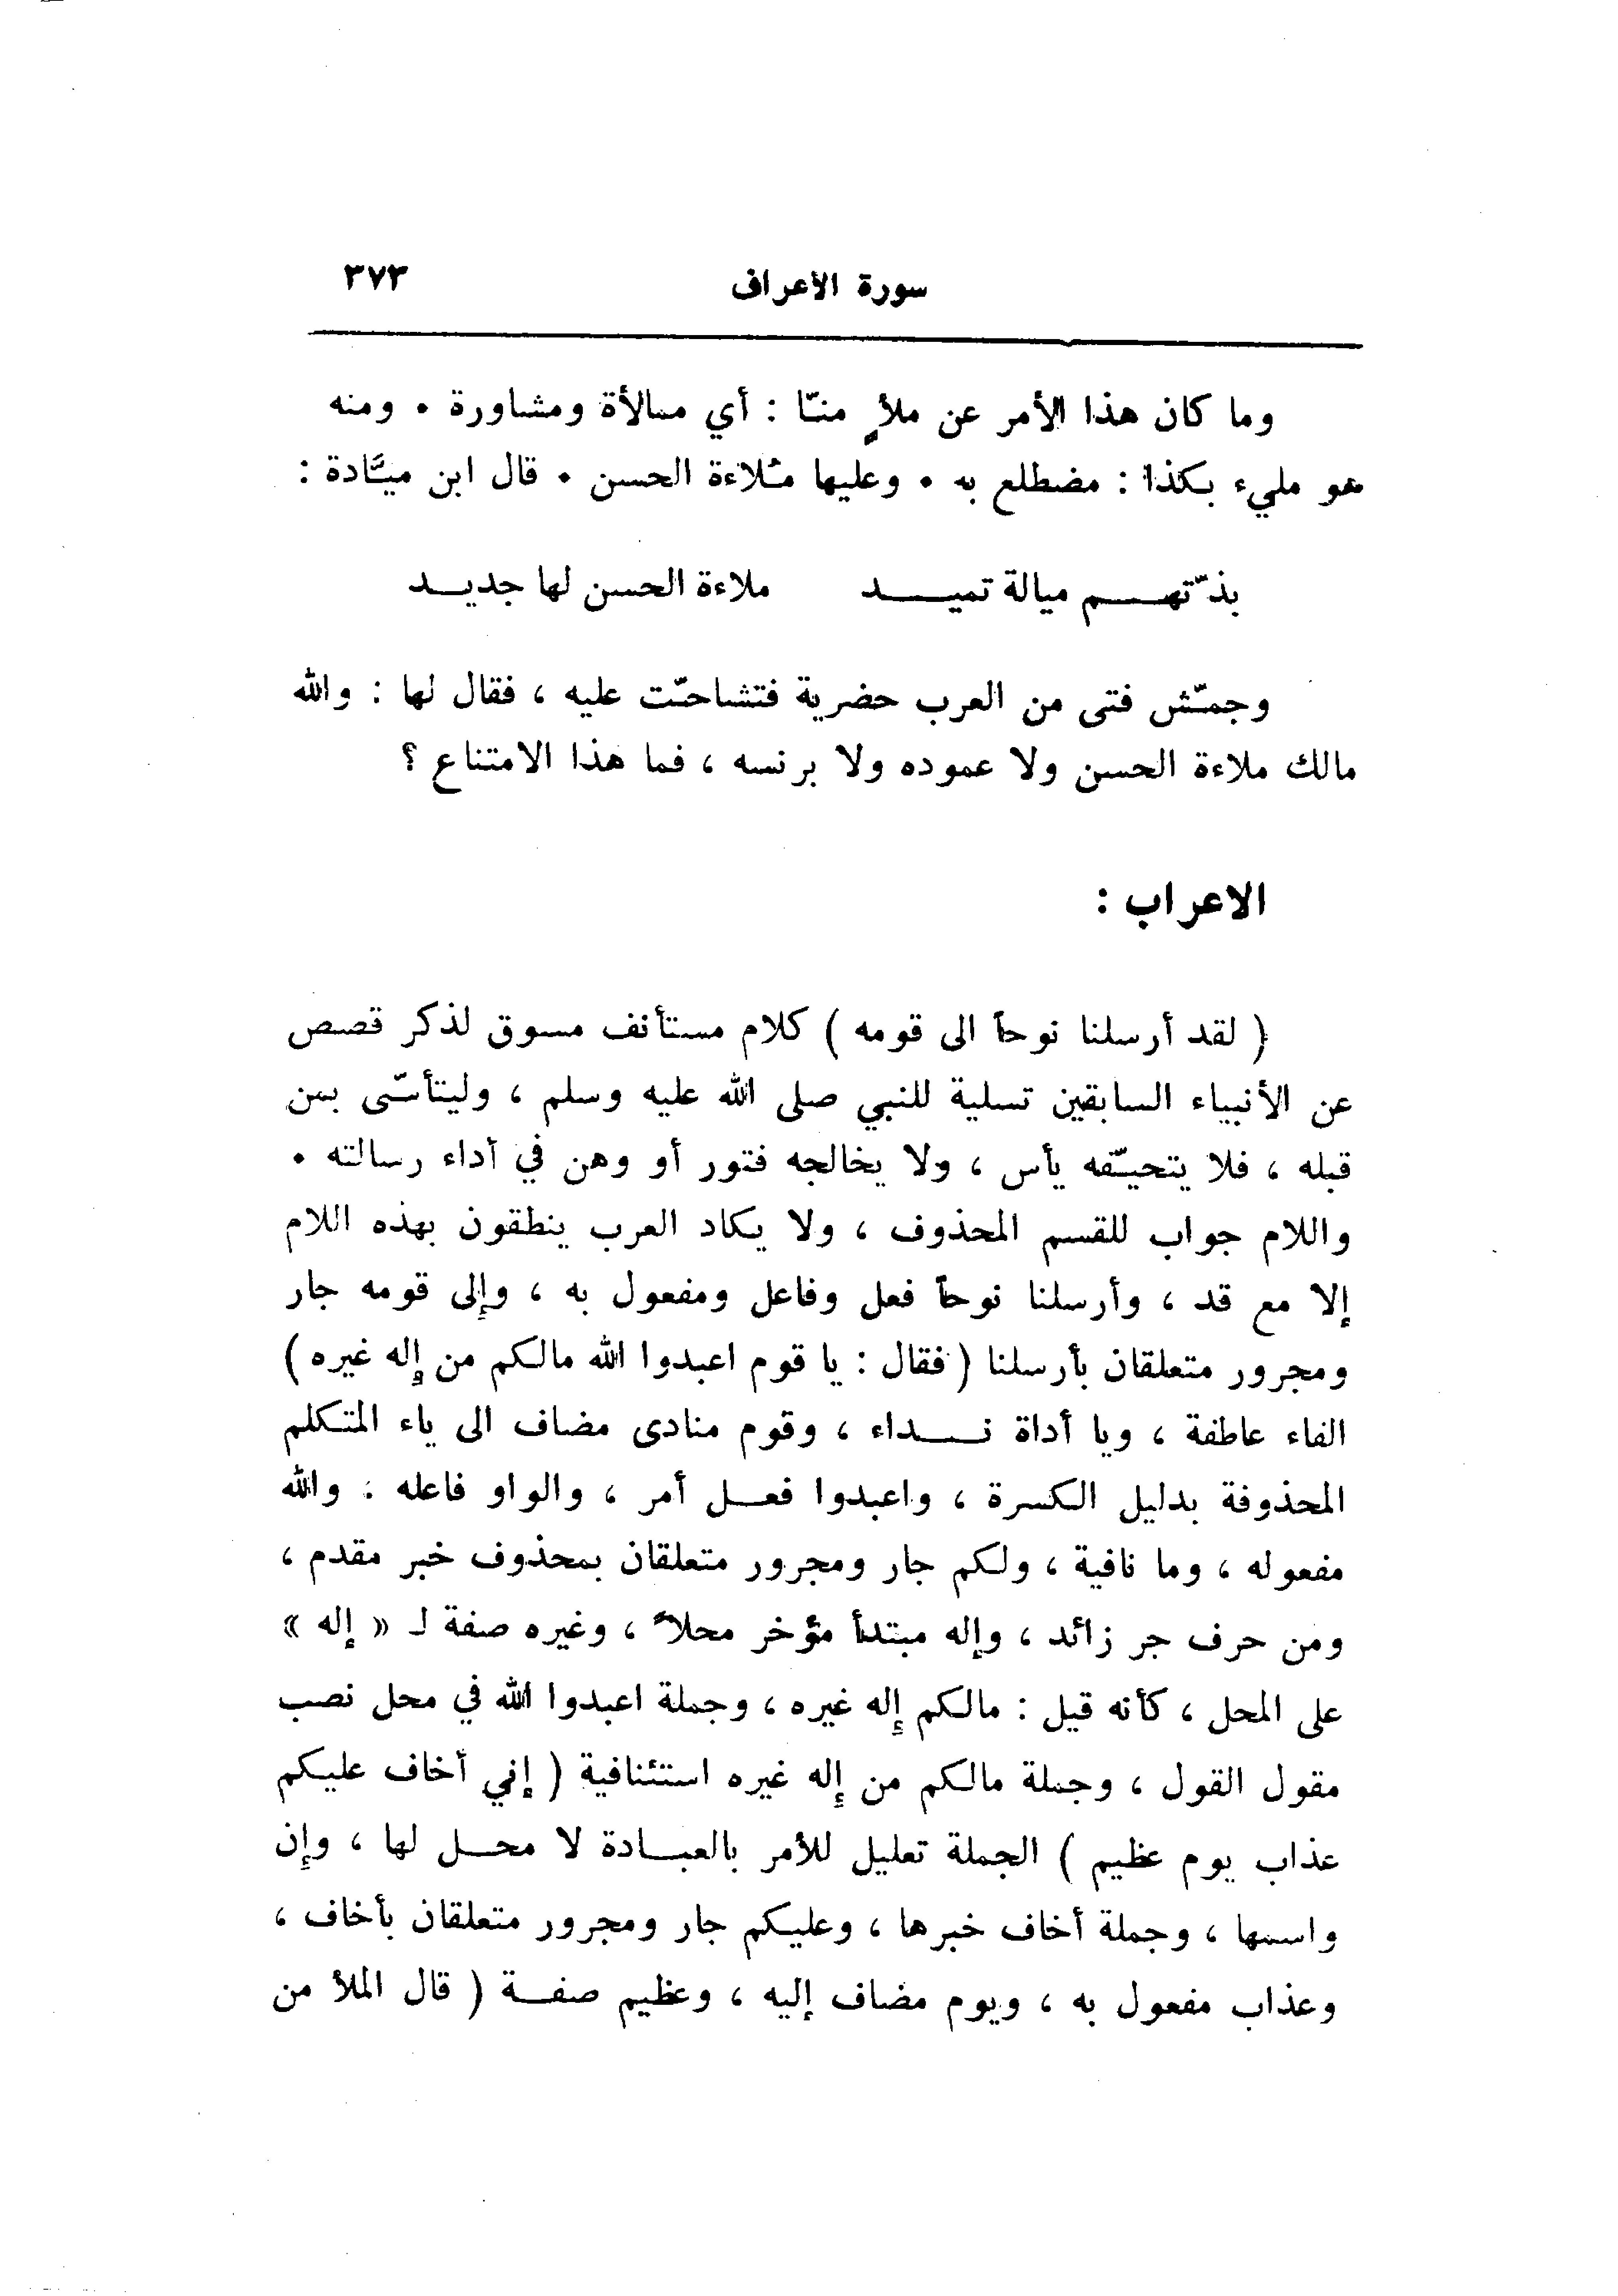 سورة الأعراف ٣٧٣
وما كان هذا الأمر عن ملأٍ منّا : أي ممالأة ومشاورة . ومنه
هو مليء بكذا : مضطلع به . وعليها مُلاءة الحسن . قال ابن ميَّادة :
بذّتهم ميالة تميد ملاءة الحسن لها جديد
وجمّش فتى من العرب حضرية فتشاحّت عليه ، فقال لها : والله
مالك ملاءة الحسن ولا عموده ولا برنسه ، فما هذا الامتناع ؟
الاعراب :
( لقد أرسلنا نوحاً الى قومه ) كلام مستأنف مسوق لذكر قصص
عن الأنبياء السابقين تسلية للنبي صلى الله عليه وسلم ، وليتأسّى بمن
قبله ، فلا يتحيّفه يأس ، ولا يخالجه فتور أو وهن في أداء رسالته .
واللام جواب للقسم المحذوف ، ولا يكاد العرب ينطقون بهذه اللام
إلا مع قد ، وأرسلنا نوحاً فعل وفاعل ومفعول به ، وإلى قومه جار
ومجرور متعلقان بأرسلنا ( فقال : يا قوم اعبدوا الله مالكم من إله غيره )
الفاء عاطفة ، ويا أداة نداء ، وقوم منادى مضاف الى ياء المتكلم
المحذوفة بدليل الكسرة ، واعبدوا فعل أمر ، والواو فاعله ؛ والله
مفعوله ، وما نافية ، ولكم جار ومجرور متعلقان بمحذوف خبر مقدم ،
ومن حرف جر زائد ، وإله مبتدأ مؤخر محلاً ، وغيره صفة لـ « إله »
على المحل ، كأنه قيل : مالكم إله غيره ، وجملة اعبدوا الله في محل نصب
مقول القول ، وجملة مالكم من إله غيره استئنافية ( إني أخاف عليكم
عذاب يوم عظيم ) الجملة تعليل للأمر بالعبادة لا محل لها ، وإن
واسمها ، وجملة أخاف خبرها ، وعليكم جار ومجرور متعلقان بأخاف ،
وعذاب مفعول به ، ويوم مضاف إليه ، وعظيم صفة ( قال الملأ من